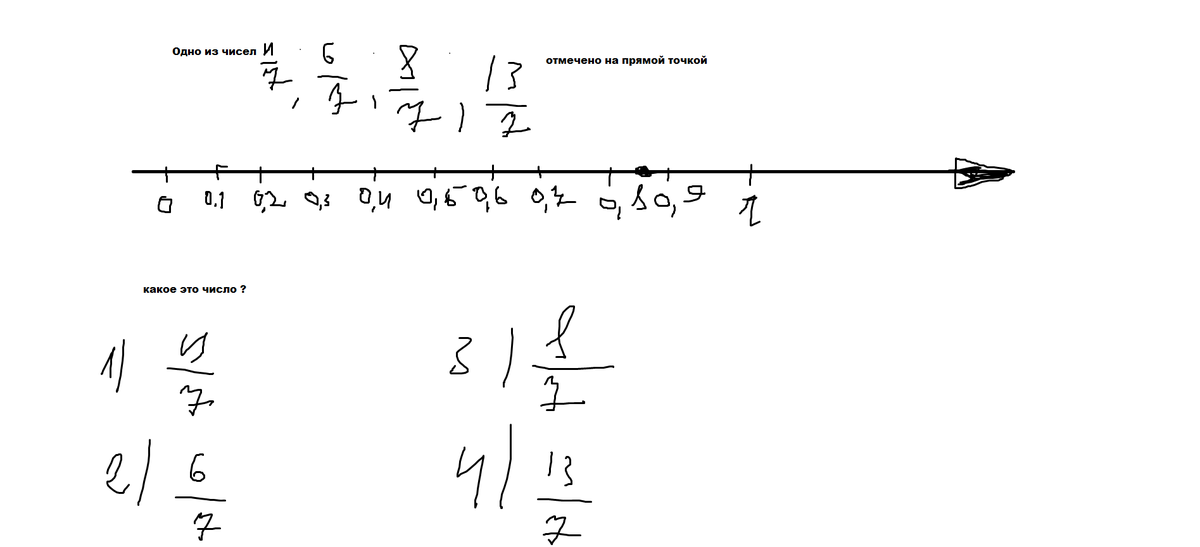 Одно из чисел 4/7, 6/7, 8/7, 13/7 отмечено на прямой точкой
0 0,1 0,2 0,3 0,4 0,5 0,6 0,7 0,8 0,9 1
какое это число ?
1) 4/7 3) 8/7
2) 6/7 4) 13/7